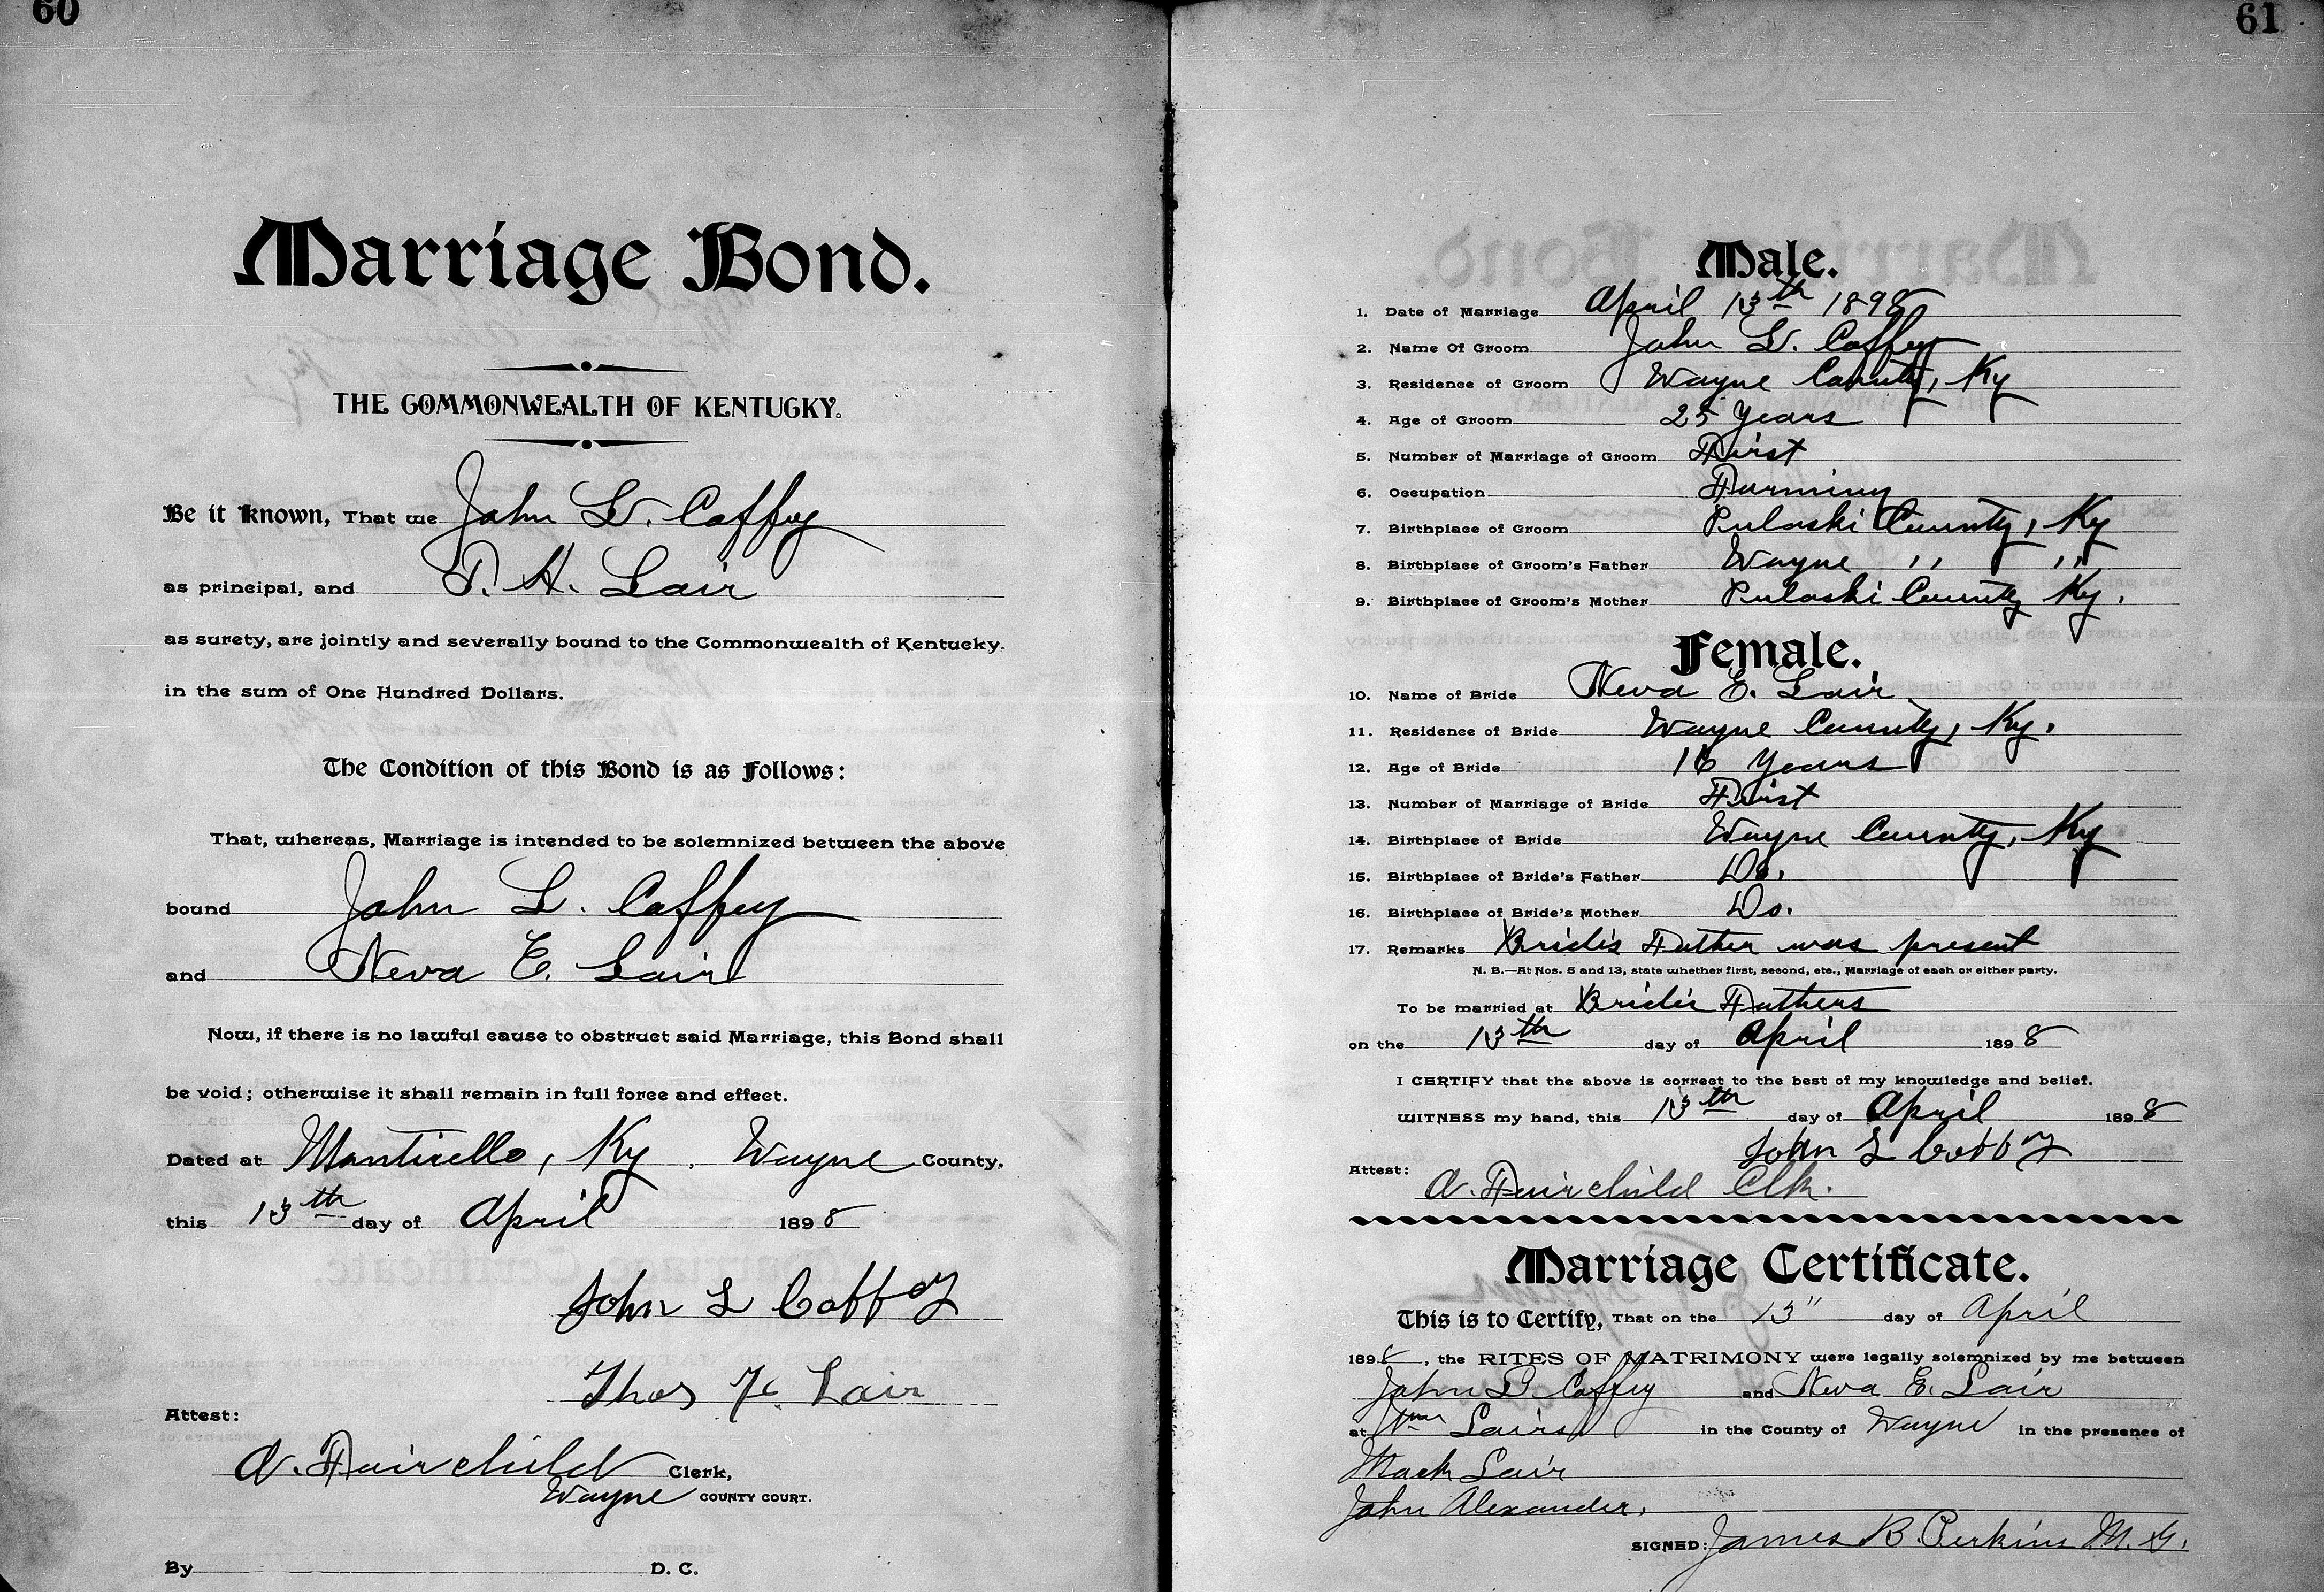 60
Marriage Bond.
THE COMMONWEALTH OF KENTUCKY.
Be it known, That we John L. Coffey
as principal, and T. H. Lair
as surety, are jointly and severally bound to the Commonwealth of Kentucky.
in the sum of One Hundred Dollars.
The Condition of this Bond is as Follows:
That, whereas, Marriage is intended to be solemnized between the above
bound John L. Coffey
and Neva E. Lair
Now, if there is no lawful cause to obstruct said Marriage, this Bond shall
be void; otherwise it shall remain in full force and effect.
Dated at Monticello, Ky. Wayne County,
this 13th day of April 1898
John L Coffey
Thos H. Lair
Attest:
A. Fairchild Clerk,
Wayne COUNTY COURT.
By D. C.
61
Male.
1. Date of Marriage April 13th 1898
2. Name Of Groom John L. Coffey
3. Residence of Groom Wayne County, Ky
4. Age of Groom 25 Years
5. Number of Marriage of Groom First
6. Occupation Farming
7. Birthplace of Groom Pulaski County, Ky
8. Birthplace of Groom's Father Wayne " "
9. Birthplace of Groom's Mother Pulaski County Ky.
Female.
10. Name of Bride Neva E. Lair
11. Residence of Bride Wayne County, Ky.
12. Age of Bride 16 Years
13. Number of Marriage of Bride First
14. Birthplace of Bride Wayne County, Ky
15. Birthplace of Bride's Father Do.
16. Birthplace of Bride's Mother Do.
17. Remarks Bride's Father was present
N. B.—At Nos. 5 and 13, state whether first, second, etc., Marriage of each or either party.
To be married at Bride's Fathers
on the 13th day of April 1898
I CERTIFY that the above is correct to the best of my knowledge and belief.
WITNESS my hand, this 13th day of April 1898
John L Coffey
Attest:
A. Fairchild Clk.
Marriage Certificate.
This is to Certify, That on the 13" day of April
1898, the RITES OF MATRIMONY were legally solemnized by me between
John L. Coffey and Neva E. Lair
at Wm Lairs in the County of Wayne in the presence of
Mack Lair
John Alexander.
SIGNED: James B. Perkins M. G.